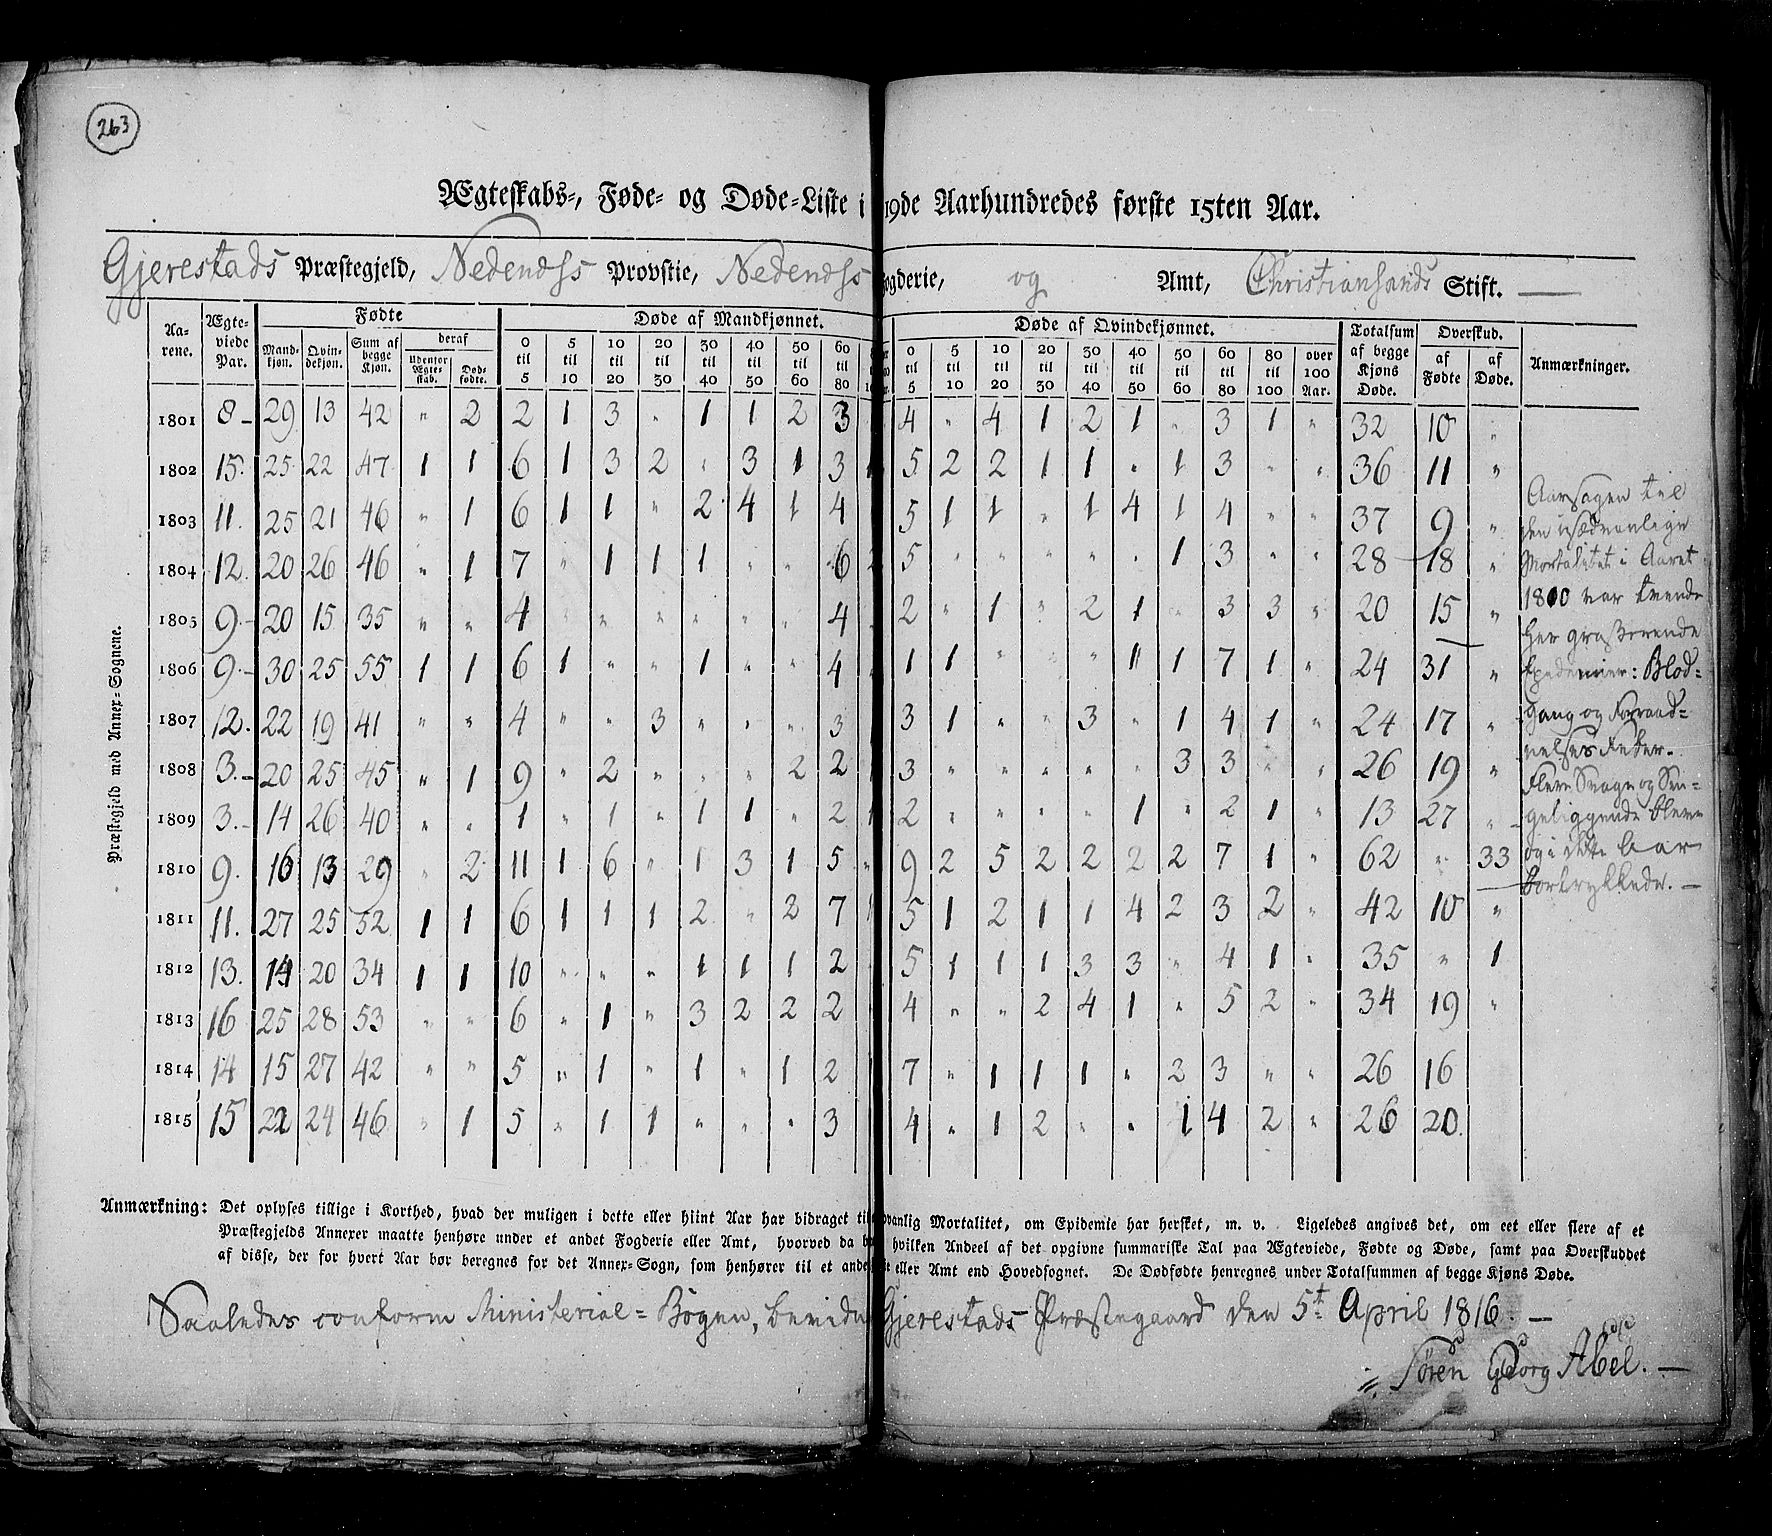 263
Ægteskabs-, Føde- og Døde-Liste i 19de Aarhundredes første 15ten Aar.
Gjerestads Præstegjeld, Nedenæss Provstie, Nedenæss ogderie, og Amt, Christiansands Stift.
Præstegjeld med Annex-Sognene.
Aa-rene. Ægte-viede Par. Født​e Mand-kjøn. Qvin-dekjøn. Sum af begge Kjøn. deraf Udenfor Ægte-skab. Død-fødte.
Døde af Mandkjønnet. 0 til 5 5 til 10 10 til 20 20 til 30 30 til 40 40 til 50 50 til 60 60 til 80
Døde af Qvindekjønnet. 0 til 5 5 til 10 10 til 20 20 til 30 30 til 40 40 til 50 50 til 60 60 til 80 80 til 100 over 100 Aar.
Totalsum af begge Kjøns Døde. Overskud. af Fødte af Døde. Anmærkninger.
1801 8 29 13 42 " 2 2 1 3 " 1 1 2 3 4 " 4 1 2 1 " 3 1 " 32 10 "
1802 15 25 22 47 1 1 6 1 3 2 " 3 1 3 5 2 2 1 1 " 1 3 " " 36 11 "
1803 11. 25 21 46 " 1 6 1 1 " 2 4 1 4 5 1 1 " 1 4 1 4 " " 37 9 "
1804 12. 20 26 46 " 1 7 " 1 1 1 " " 6 5 " " " " " 1 3 " " 28 18 "
1805 9. 20 15 35 " " 4 " " " " " " 4 2 " 1 " 2 1 " 3 3 " 20 15 "
1806 9. 30 25 55 1 1 6 1 " " 1 " " 4 1 1 " " " 1 1 7 1 " 24 31 "
1807 12. 22 19 41 " " 4 " " 3 " " " 3 3 1 " " 3 " 1 4 1 " 24 17 "
1808 3. 20 25 45 " 1 9 " 2 " " " 2 2 3 " " " " " 3 3 " " 26 19 "
1809 3. 14 26 40 " " 1 " 1 " 1 1 " 2 2 " " " " 1 " 2 1 " 13 27 "
1810 9. 16 13 29 " 2 11 1 6 " 1 3 1 5 9 2 5 2 2 2 2 7 1 " 62 " 33
1811 11. 27 25 52 1 1 6 1 1 1 2 " 2 7 5 1 2 1 1 4 2 3 2 " 42 10 "
1812 13. 14 20 34 1 1 10 " " " 1 1 1 2 5 1 1 1 3 3 " 4 1 " 35 " 1
1813 16 25 28 53 " " 6 " 1 " 3 2 2 2 4 " " 2 4 1 " 5 2 " 34 19 "
1814 14 15 27 42 " " 5 " 1 " 1 " 1 2 7 " 1 1 1 " 2 3 " " 26 16
1815 15 22 24 46 " 1 5 " 1 1 " " " 3 4 " 1 2 " " 1 4 2 " 26 20.
Aarsagen til
den usædvanlige
Mortalitet i Aaret
1810 var tvende
her grasserende
Epedemier: Blod=
gang og Forraad=
nelses Feber.
Flere Svage og Sen=
geliggende bleve
og i dette Aar
bortrykkede. —
Anmærkning: Det oplyses tillige i Korthed, hvad der muligen i dette eller hiint Aar har bidraget til vanlig Mortalitet, om Epidemie har hersket, m. v. Ligeledes angives det, om eet eller flere af et
Præstegjelds Annexer maatte henhøre under et andet Fogderie eller Amt, hvorved da hvilken Andeel af det opgivne summariske Tal paa Ægteviede, Fødte og Døde, samt paa Overskuddet
af disse, der for hvert Aar bør beregnes for det Annex-Sogn, som henhører til et andet eller Amt end Hovedsognet. De Dødfødte henregnes under Totalsummen af begge Kjøns Døde.
Saaledes conform Ministerial=Bogen, bevidn Gjerestads Præstegaard den 5t April 1816. —
Søren Georg Abel. —